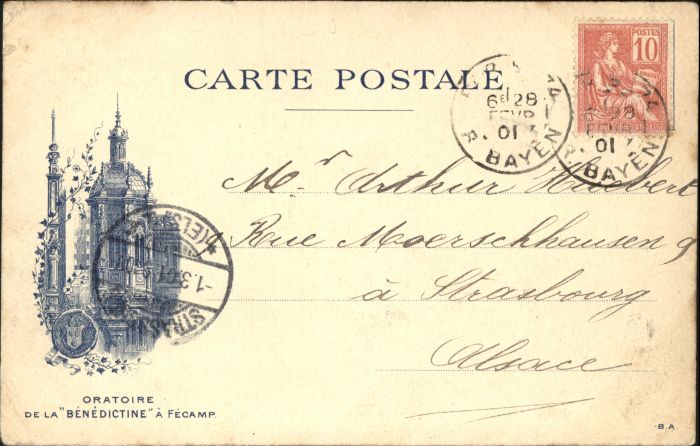 CARTE POSTALE
POSTES
10
PARIS 74
6E 28
FEVR
01
R. BAYEN
6E 28
FEVR
01
R. BAYEN
Mr Arthur Huebert
Rue Moerschhausen 9
à Strasbourg
Alsace
STRASS
-1.3.01
ORATOIRE
DE LA "BÉNÉDICTINE" À FÉCAMP.
B.A.